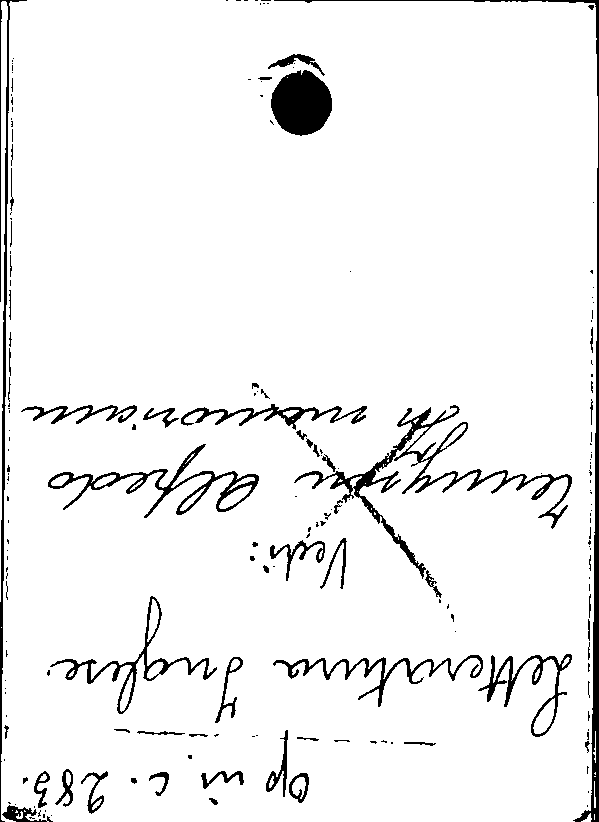 Op in. c. 283.
Letteratura Inglese
Vedi:
Tennyson Alfredo
In memoriam